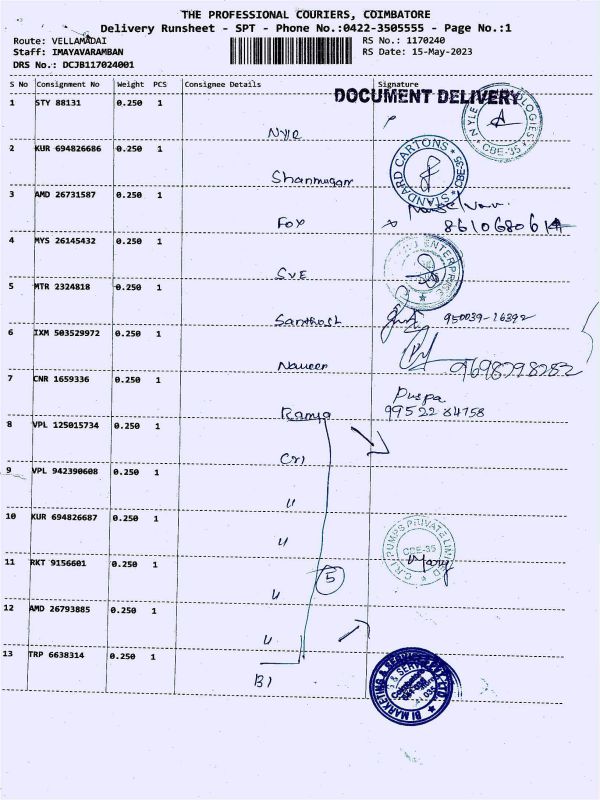 THE PROFESSIONAL COURIERS, COIMBATORE
Delivery Runsheet - SPT - Phone No.:0422-3505555 - Page No.:1
Route: VELLAMADAI RS No.: 1170240
Staff: IMAYAVARAMBAN RS Date: 15-May-2023
DRS No.: DCJB117024001
S No Consignment No Weight PCS Consignee Details Signature
DOCUMENT DELIVERY
1 STY 88131 0.250 1
CBE-35
2 KUR 694826686 0.250 1
STANDARD CARTONS CBE-35
Shanmugam
3 AMD 26731587 0.250 1
Fox 8610680614
4 MYS 26145432 0.250 1
ENTERPRISE
SVE
5 MTR 2324818 0.250 1
Santhosh 950039-16392
6 IXM 503529972 0.250 1
Naveen 9698798282
7 CNR 1659336 0.250 1 Puspa
Ramya 99522 84758
8 VPL 125015734 0.250 1
CRI
9 VPL 942390608 0.250 1
"
10 KUR 694826687 0.250 1
"
C.R.I PUMPS PRIVATE LIMITED
CBE-35
11 RKT 9156601 0.250 1
5
"
12 AMD 26793885 0.250 1
"
13 TRP 6638314 0.250 1
BI
BI MARKETING & SERVICES PVT. LTD.
Coimbatore